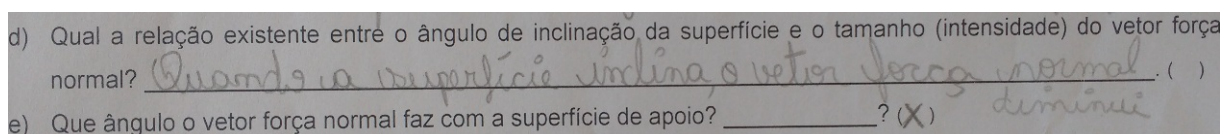 d) Qual a relação existente entre o ângulo de inclinação da superfície e o tamanho (intensidade) do vetor força
normal? Quando a superfície inclina, o vetor força normal. ( )
diminui
e) Que ângulo o vetor força normal faz com a superfície de apoio? ____________? (X)